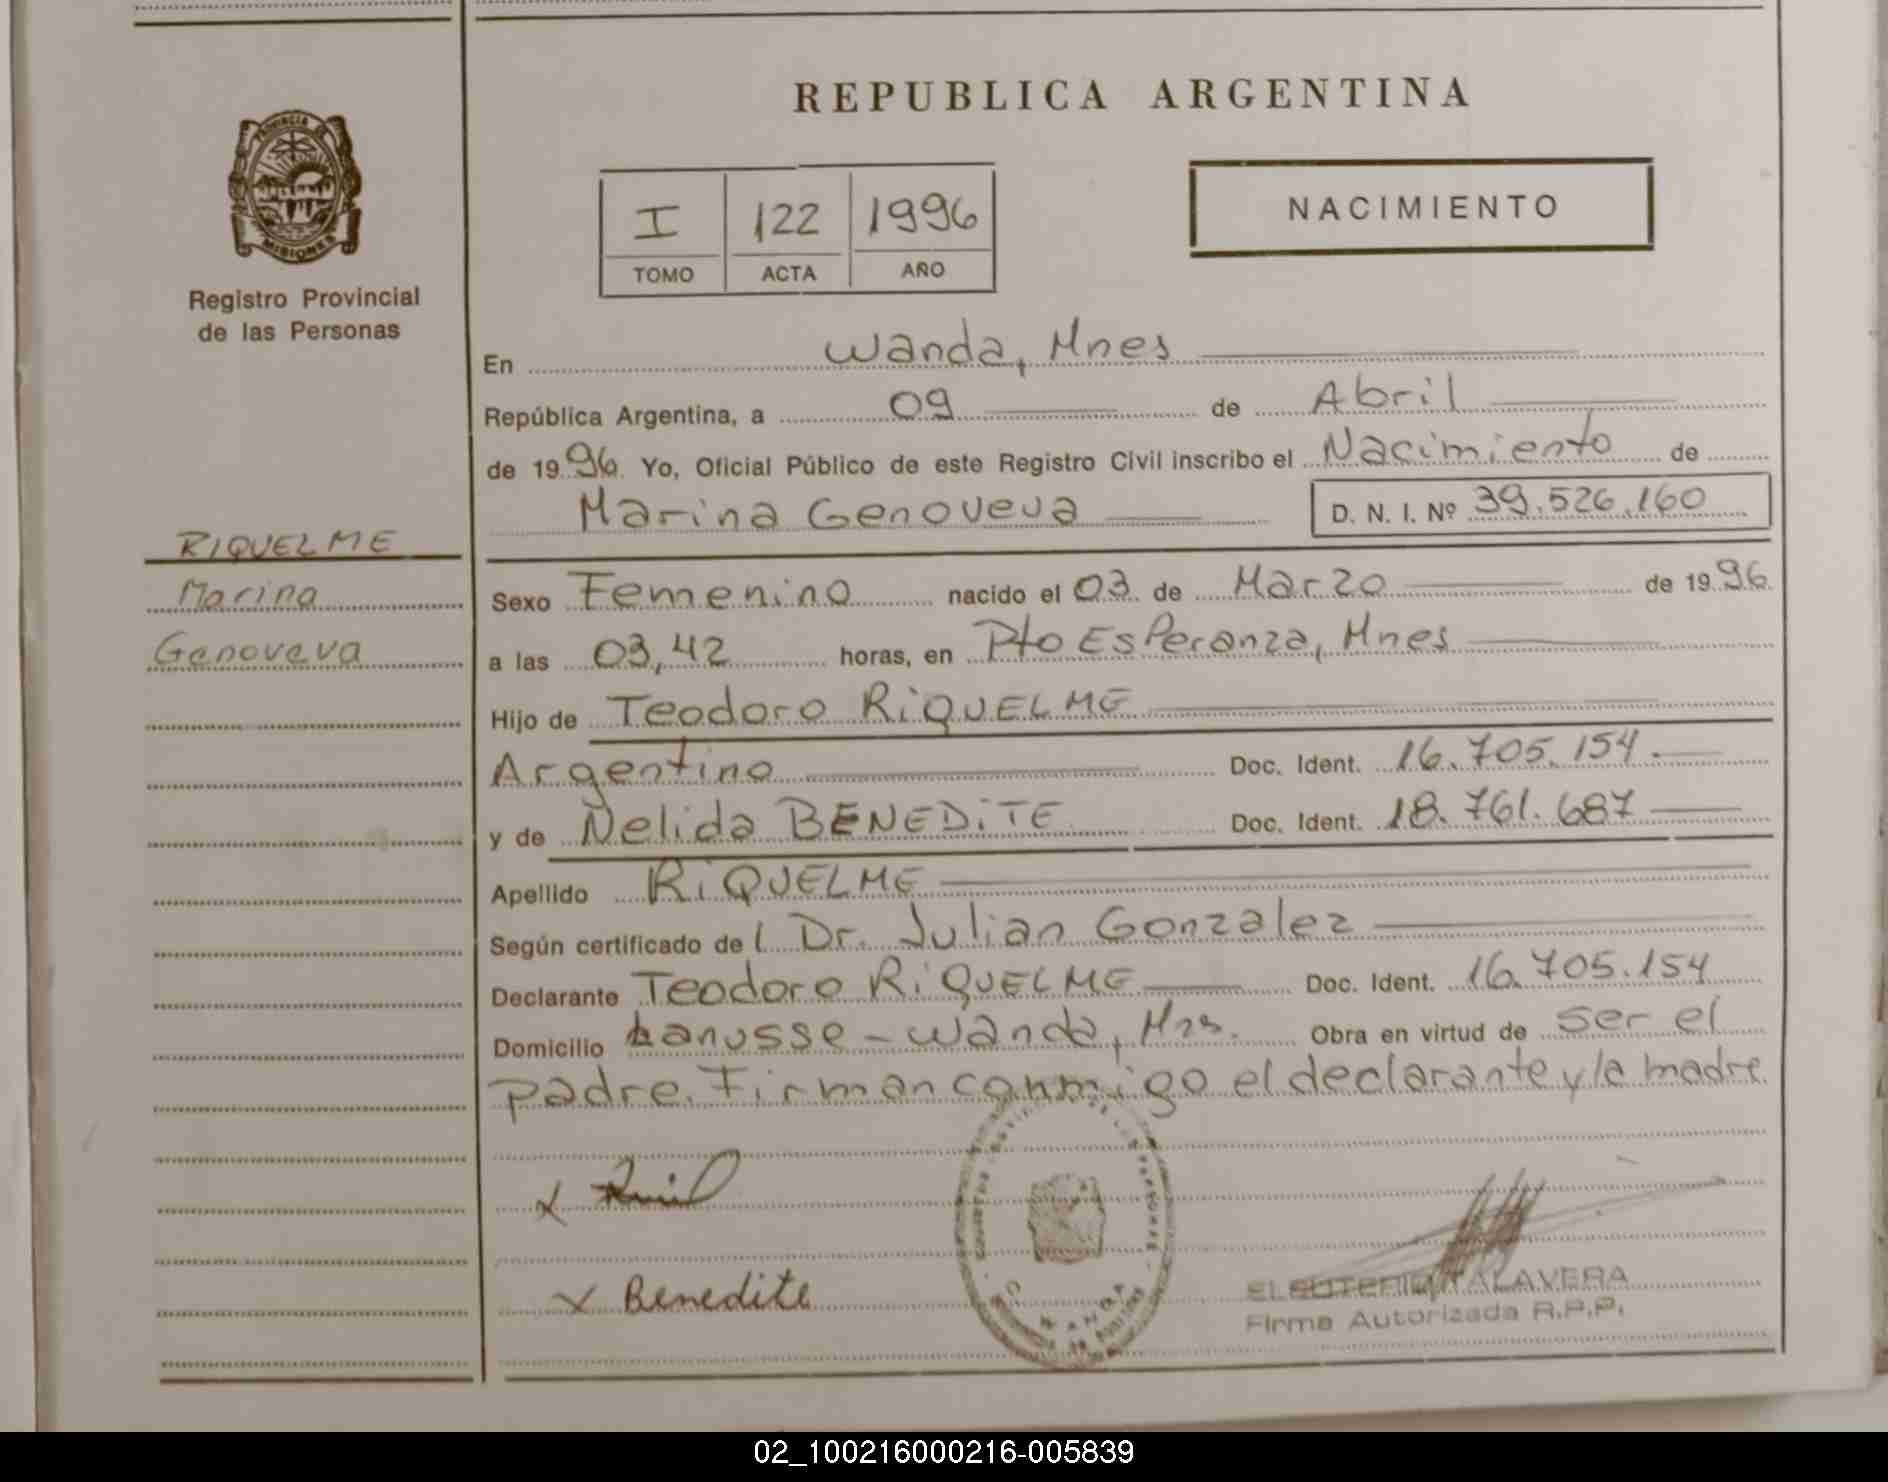 REPUBLICA ARGENTINA
PROVINCIA DE
MISIONES
Registro Provincial
de las Personas
NACIMIENTO
I 122 1996
TOMO ACTA AÑO
En Wanda, Mnes
República Argentina, a 09 de Abril
de 1996. Yo, Oficial Público de este Registro Civil inscribo el Nacimiento de
Marina Genoveva D. N. I. Nº 39.526.160
RIQUELME
Marina
Genoveva
Sexo Femenino nacido el 03 de Marzo de 1996
a las 03,42 horas, en Pto Esperanza, Mnes
Hijo de Teodoro RIQUELME
Argentino Doc. Ident. 16.705.154.
y de Nelida BENEDITE Doc. Ident. 18.761.687
Apellido RIQUELME
Según certificado de l Dr. Julian Gonzalez
Declarante Teodoro RIQUELME Doc. Ident. 16.705.154
Domicilio Lanusse - Wanda, Mns. Obra en virtud de ser el
padre. Firman conmigo el declarante y la madre
x
x Benedite
WANDA
TALAVERA
Firma Autorizada R.P.P.
02_100216000216-005839